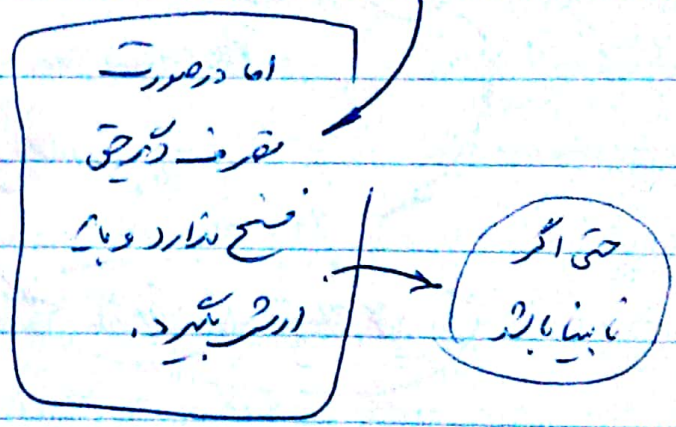 اما در صورت
تصرف دگر حق
فسخ ندارد و باید
ارش بگیرد.
حتی اگر
نابینا باشد